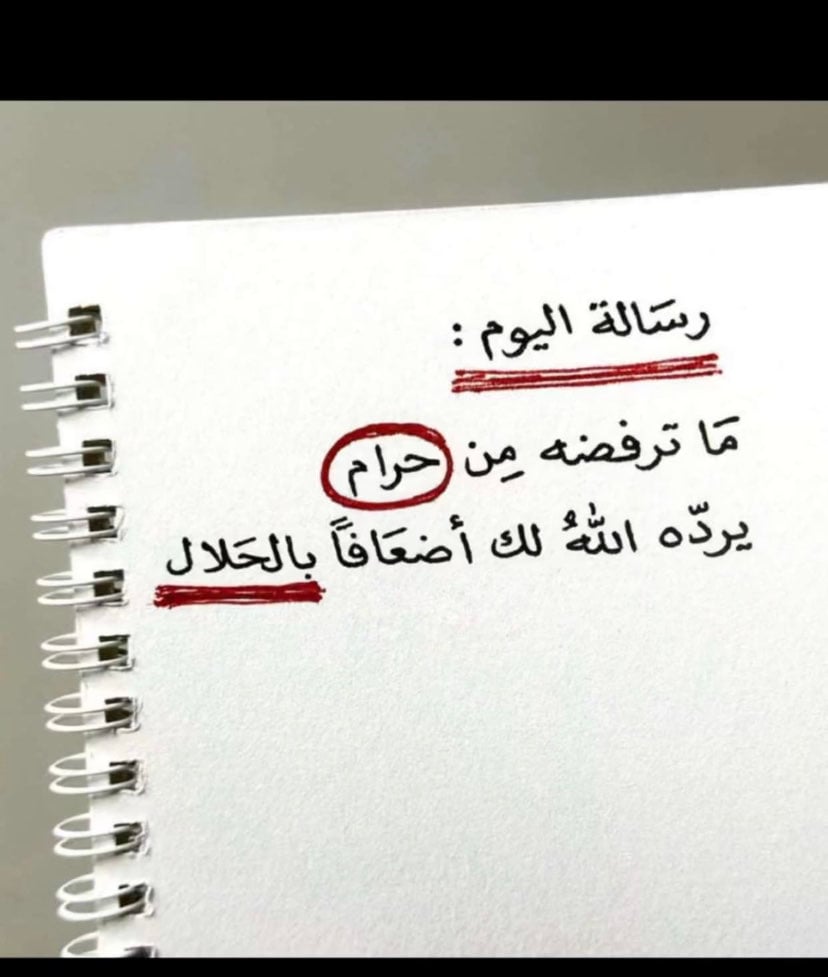 رسَالة اليوم :
مَا ترفضه مِن حرام
يردّه اللّٰهُ لك أضعَافاً بالحَلال